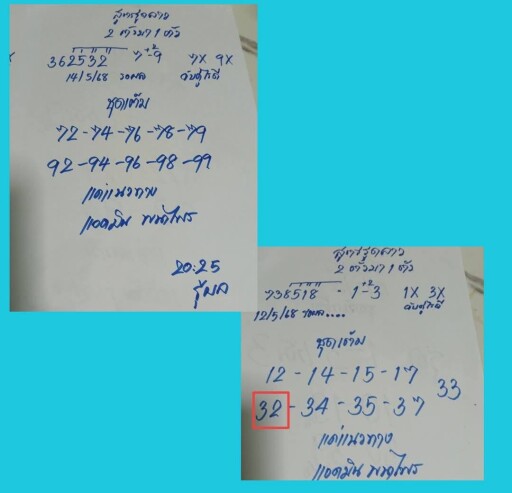 สูตรชุดลาว
2 ตัวมา 1 ตัว
362532 7+2-9 7X 9X
14/5/68 รอผล จับคู่ได้ดี
ชุดเต็ม
72-74-76-78-79
92-94-96-98-99
แค่แนวทาง
แอดมิน พนาไพร
20:25
รู้ผล
สูตรชุดลาว
2 ตัวมา 1 ตัว
738518 - 1+2-3 1X 3X
12/5/68 รอผล.... จับคู่ได้ดี
ชุดเต็ม
12-14-15-17
32-34-35-37 33
แค่แนวทาง
แอดมิน พนาไพร